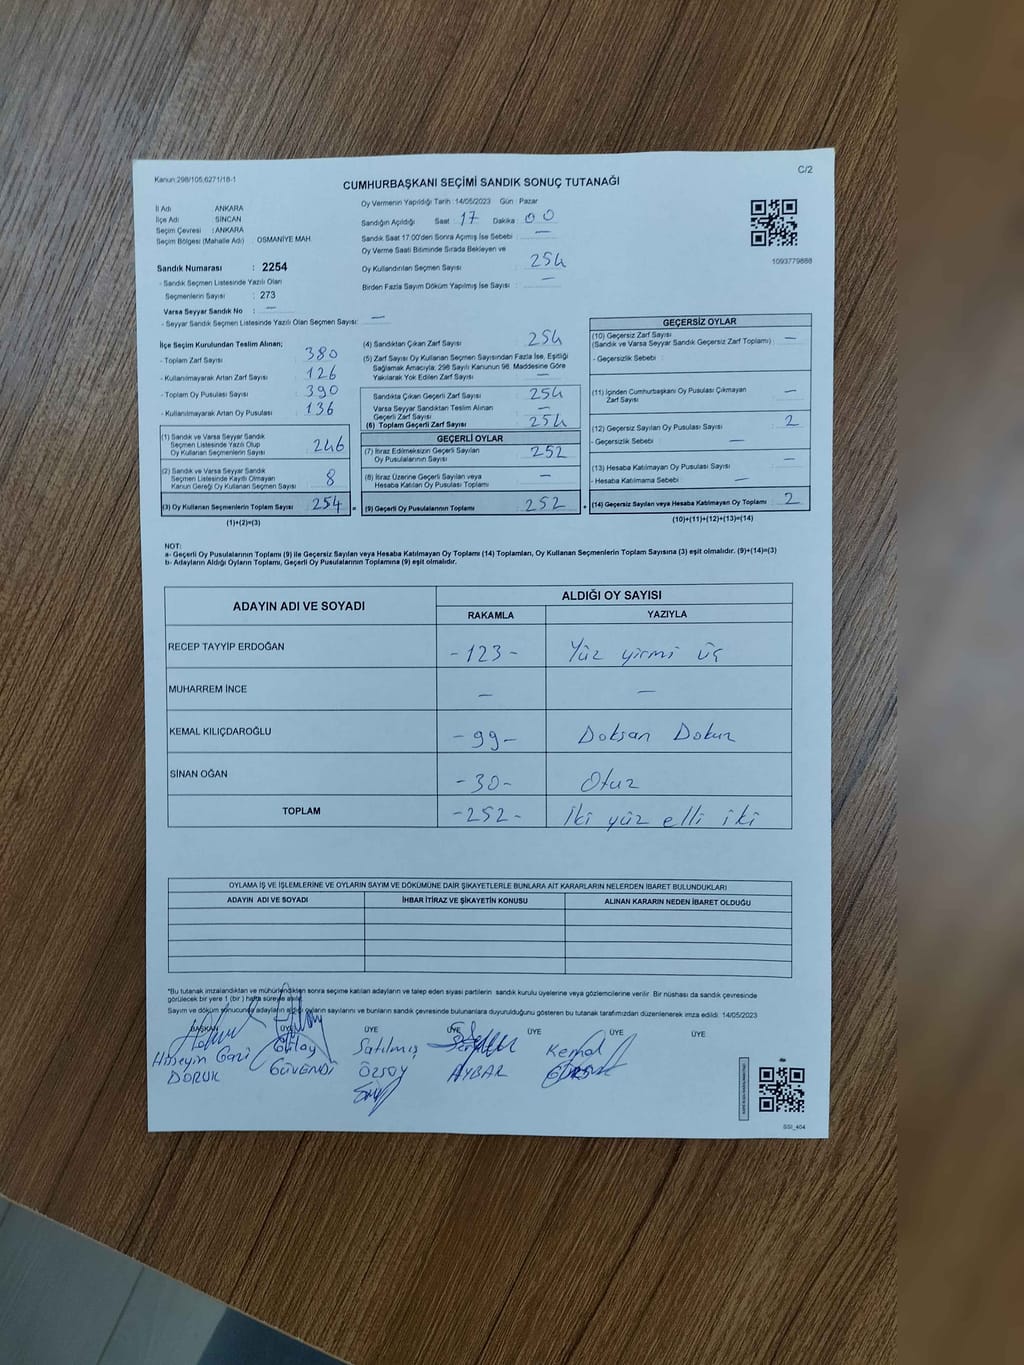 Kanun:298/105,6271/18-1
C/2
CUMHURBAŞKANI SEÇİMİ SANDIK SONUÇ TUTANAĞI
İl Adı ANKARA
İlçe Adı : SİNCAN
Seçim Çevresi : ANKARA
Seçim Bölgesi (Mahalle Adı) . OSMANİYE MAH.
Sandık Numarası : 2254
- Sandık Seçmen Listesinde Yazılı Olan
Seçmenlerin Sayısı : 273
Varsa Seyyar Sandık No : —
- Seyyar Sandık Seçmen Listesinde Yazılı Olan Seçmen Sayısı: —
Oy Vermenin Yapıldığı Tarih :14/05/2023 Gün : Pazar
Sandığın Açıldığı Saat 17 Dakika 00
Sandık Saat 17:00'den Sonra Açımış İse Sebebi : —
Oy Verme Saati Bitiminde Sırada Bekleyen ve
Oy Kullandırılan Seçmen Sayısı : 254
Birden Fazla Sayım Döküm Yapılmış İse Sayısı : —
1093779888
İlçe Seçim Kurulundan Teslim Alınan;
- Toplam Zarf Sayısı : 380
- Kullanılmayarak Artan Zarf Sayısı : 126
- Toplam Oy Pusulası Sayısı : 390
- Kullanılmayarak Artan Oy Pusulası : 136
(1) Sandık ve Varsa Seyyar Sandık
Seçmen Listesinde Yazılı Olup
Oy Kullanan Seçmenlerin Sayısı : 246
(2) Sandık ve Varsa Seyyar Sandık
Seçmen Listesinde Kayıtlı Olmayan
Kanun Gereği Oy Kullanan Seçmen Sayısı : 8
(3) Oy Kullanan Seçmenlerin Toplam Sayısı : 254 =
(1)+(2)=(3)
(4) Sandıktan Çıkan Zarf Sayısı : 254
(5) Zarf Sayısı Oy Kullanan Seçmen Sayısından Fazla İse, Eşitliği
Sağlamak Amacıyla; 298 Sayılı Kanunun 98. Maddesine Göre
Yakılarak Yok Edilen Zarf Sayısı : —
Sandıkta Çıkan Geçerli Zarf Sayısı : 254
Varsa Seyyar Sandıktan Teslim Alınan
Geçerli Zarf Sayısı : —
(6) Toplam Geçerli Zarf Sayısı : 254
GEÇERLİ OYLAR
(7) İtiraz Edilmeksizin Geçerli Sayılan
Oy Pusulalarının Sayısı : 252
(8) İtiraz Üzerine Geçerli Sayılan veya
Hesaba Katılan Oy Pusulası Toplamı : —
(9) Geçerli Oy Pusulalarının Toplamı : 252 +
GEÇERSİZ OYLAR
(10) Geçersiz Zarf Sayısı
(Sandık ve Varsa Seyyar Sandık Geçersiz Zarf Toplamı) : —
- Geçersizlik Sebebi :
(11) İçinden Cumhurbaşkanı Oy Pusulası Çıkmayan
Zarf Sayısı : —
(12) Geçersiz Sayılan Oy Pusulası Sayısı : 2
- Geçersizlik Sebebi : —
(13) Hesaba Katılmayan Oy Pusulası Sayısı : —
- Hesaba Katılmama Sebebi : —
(14) Geçersiz Sayılan veya Hesaba Katılmayan Oy Toplamı : 2
(10)+(11)+(12)+(13)=(14)
NOT:
a- Geçerli Oy Pusulalarının Toplamı (9) ile Geçersiz Sayılan veya Hesaba Katılmayan Oy Toplamı (14) Toplamları, Oy Kullanan Seçmenlerin Toplam Sayısına (3) eşit olmalıdır. (9)+(14)=(3)
b- Adayların Aldığı Oyların Toplamı, Geçerli Oy Pusulalarının Toplamına (9) eşit olmalıdır.
ADAYIN ADI VE SOYADI ALDIĞI OY SAYISI
RAKAMLA YAZIYLA
RECEP TAYYİP ERDOĞAN -123- Yüz yirmi üç
MUHARREM İNCE — —
KEMAL KILIÇDAROĞLU -99- Doksan Dokuz
SİNAN OĞAN -30- Otuz
TOPLAM -252- İki yüz elli iki
OYLAMA İŞ VE İŞLEMLERİNE VE OYLARIN SAYIM VE DÖKÜMÜNE DAİR ŞİKAYETLERLE BUNLARA AİT KARARLARIN NELERDEN İBARET BULUNDUKLARI
ADAYIN ADI VE SOYADI İHBAR İTİRAZ VE ŞİKAYETİN KONUSU ALINAN KARARIN NEDEN İBARET OLDUĞU
*Bu tutanak imzalandıktan ve mühürlendikten sonra seçime katılan adayların ve talep eden siyasi partilerin sandık kurulu üyelerine veya gözlemcilerine verilir. Bir nüshası da sandık çevresinde
görülecek bir yere 1 (bir ) hafta süreyle asılır.
Sayım ve döküm sonucunda adayların aldığı oyların sayılarını ve bunların sandık çevresinde bulunanlara duyurulduğunu gösteren bu tutanak tarafımızdan düzenlenerek imza edildi. 14/05/2023
BAŞKAN ÜYE ÜYE ÜYE ÜYE ÜYE ÜYE
Hüseyin Gazi Gülay Satılmış Kemal
DORUK GÜVENDİ ÖZSOY AYBAR
SSI_404